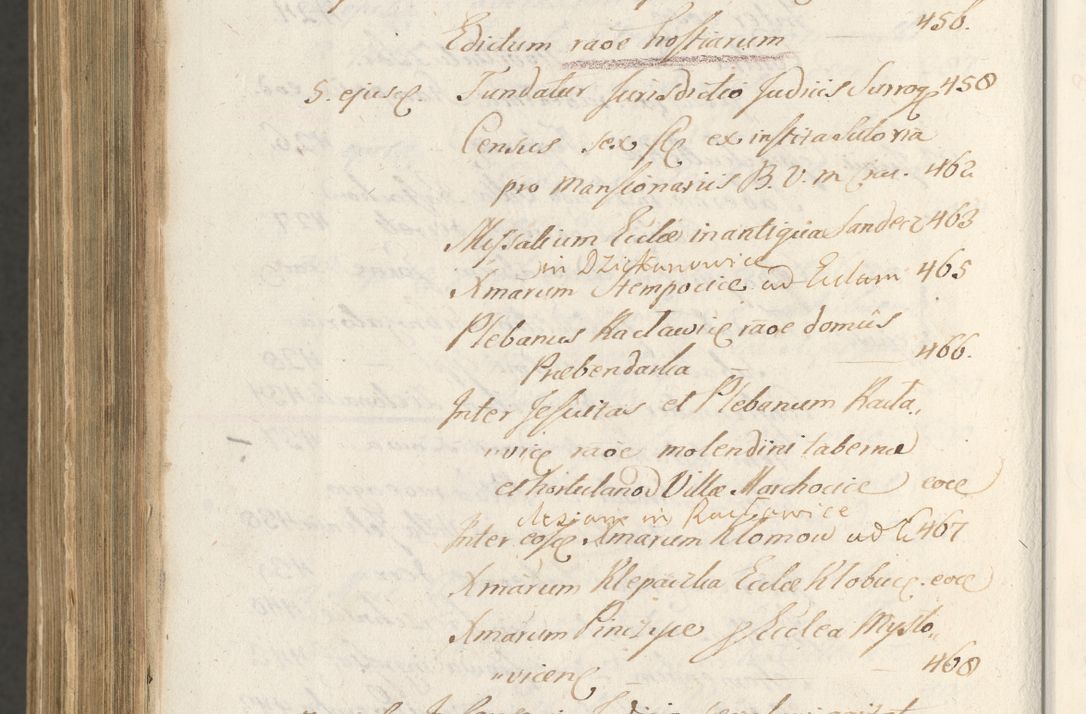 Edictum raõe hostiarum 456.
5. ejusq Fundatur Jurisdictio Judicis Surrog 458
Census sex ex instita Sutoria
pro Mansionariis B. V. M. Crac. 462
Missalium Eccłæ in antiqua Sandec 463
in Dziekanowice
Xmarum Stempocice ad Eccłam 465
Plebanus Racławic raõe domûs
Præbendarla 466.
Inter Jesuitas et Plebanum Racła„
„vicę raõe molendini tabernæ
et hortulanor Villæ Marchocice eoce
in Racławice
Inter eosq Xmarum Klonow ad E 467
Xmarum Klepaczka Eccłæ Kłobuc. eoce
Xmarum Pinczyce Eccłea Mysło„
„vicen 468